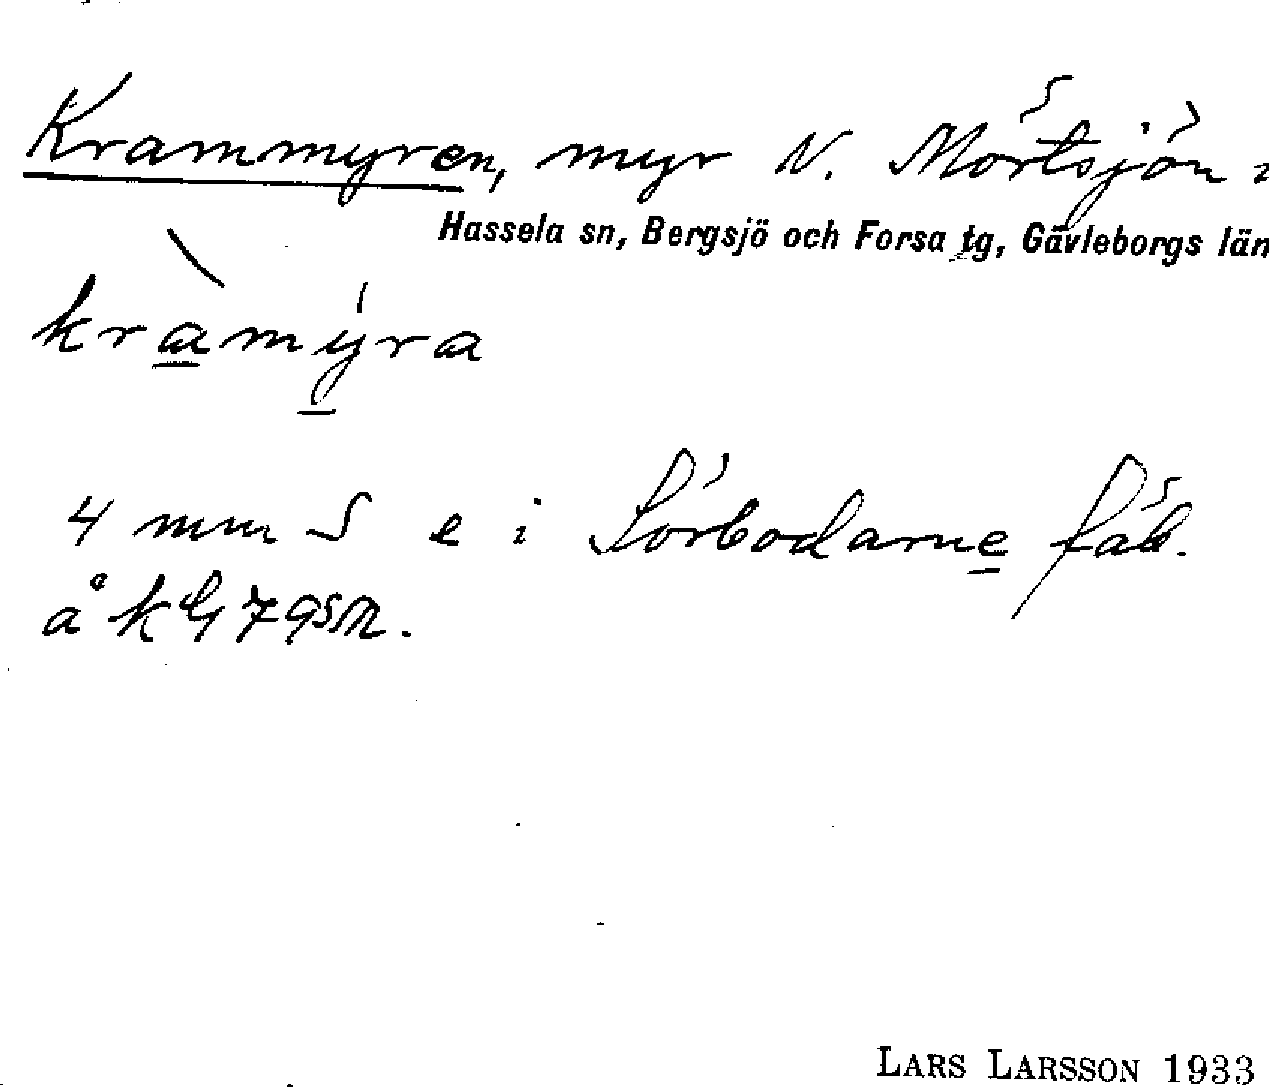 Krammyren, myr N. Mörtsjön
Hassela sn, Bergsjö och Forsa tg, Gävleborgs län
kràmýra
4 mm S e i Sörbodarne fäb.
å k G 7 gsm.
LARS LARSSON 1933